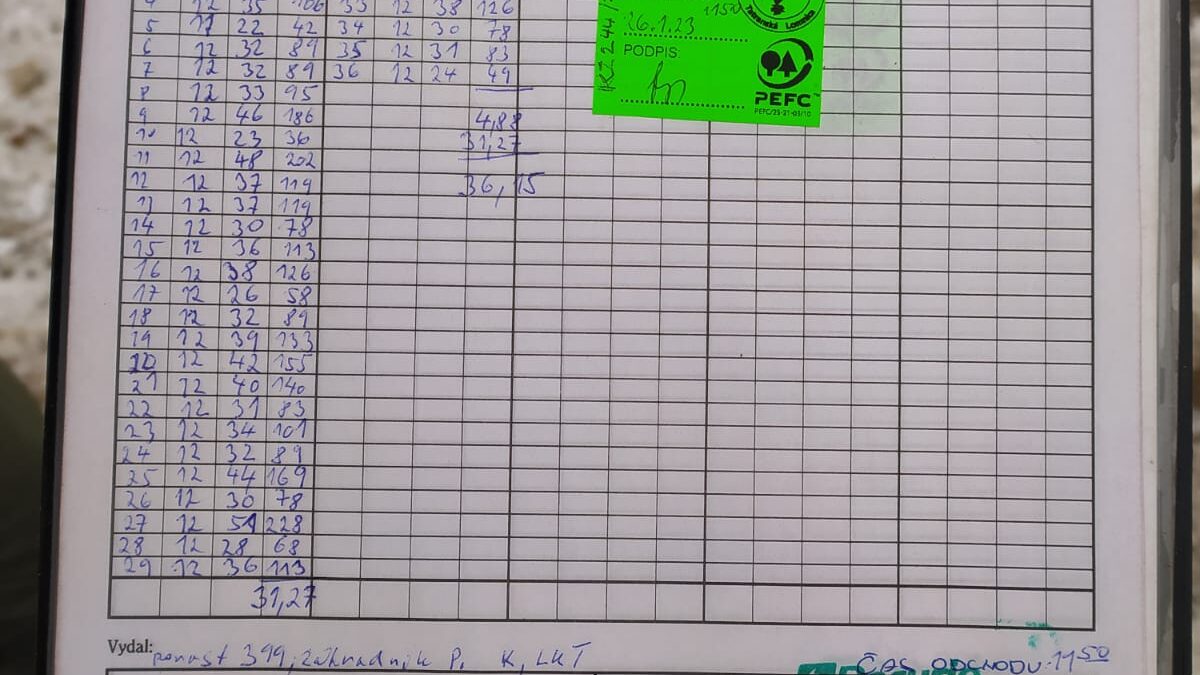 4 12 35 106 33 12 38 126
5 11 22 42 34 12 30 78
6 12 32 89 35 12 31 83
7 12 32 89 36 12 24 49
8 12 33 95
9 12 46 186 4,88
10 12 23 36 31,27
11 12 48 202
12 12 37 119 36,15
13 12 37 119
14 12 30 78
15 12 36 113
16 12 38 126
17 12 26 58
18 12 32 89
19 12 39 133
20 12 42 155
21 12 40 140
22 12 31 83
23 12 34 101
24 12 32 89
25 12 44 169
26 12 30 78
27 12 51 228
28 12 28 68
29 12 36 113
31,27
1150
26.1.23
Tatranská Lomnica
PODPIS:
PEFC™
PEFC/25-21-03/10
Vydal: porast 399, záhradník P. K, LKT
ČAS ODCHODU 11 50